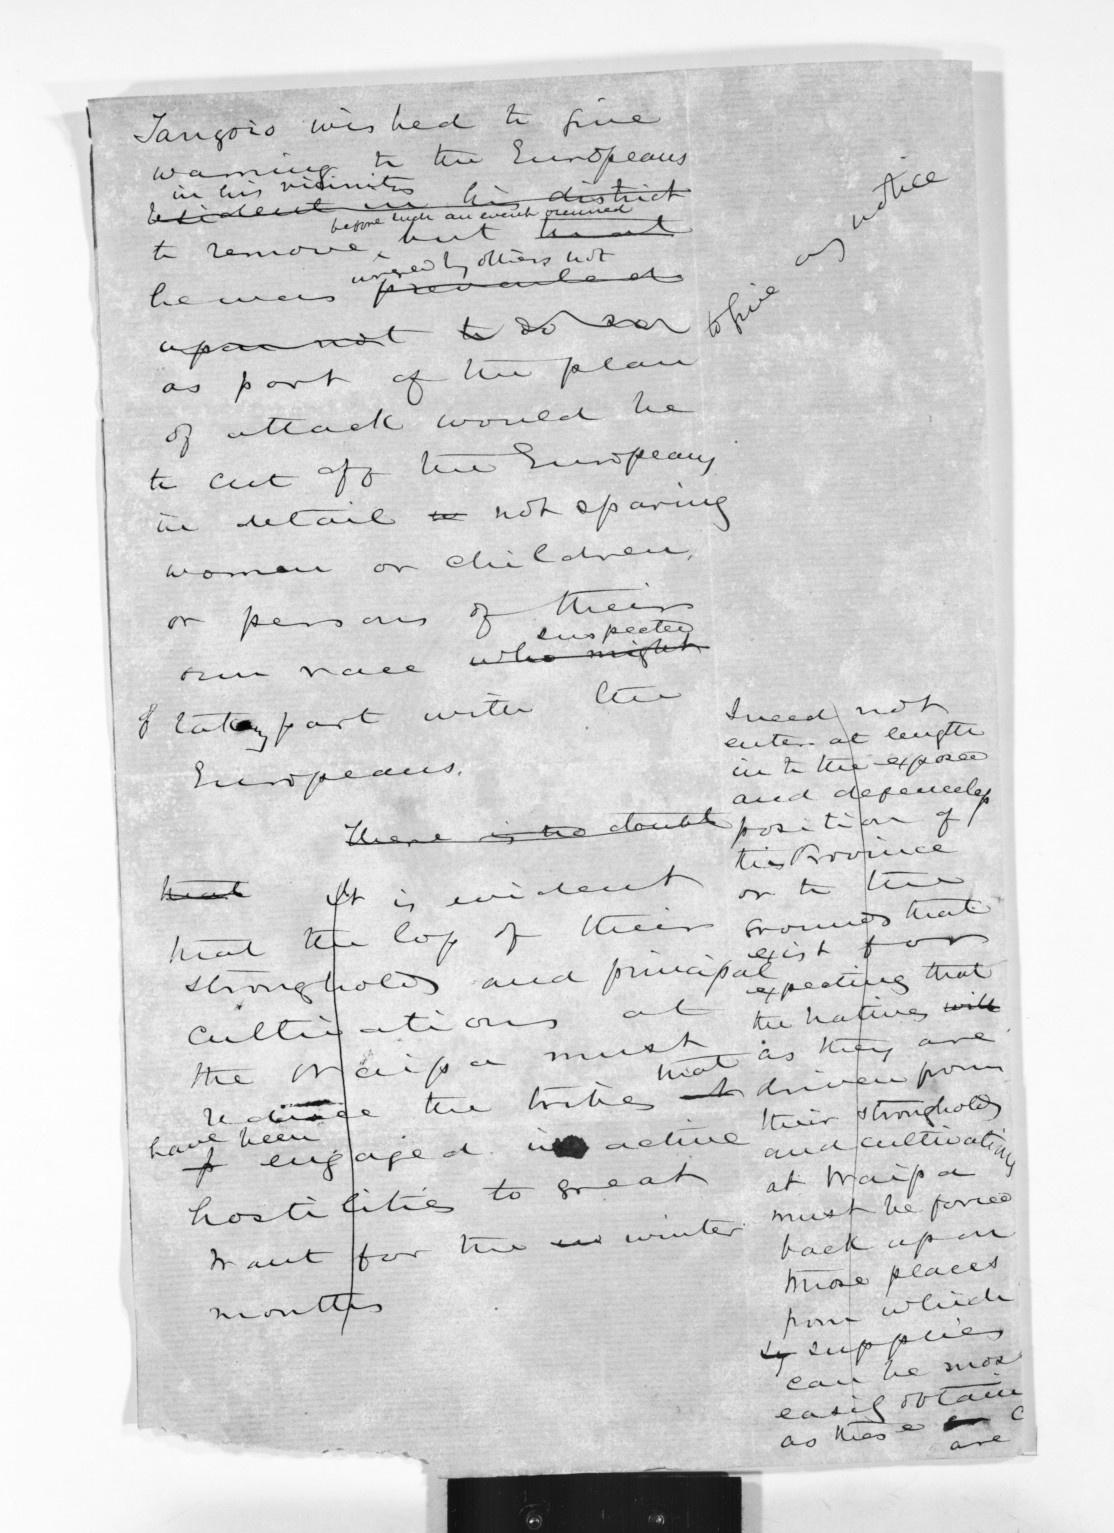 Tangoio wished to give
warning to the Europeans
in his vicinity
resident in his district
before such an event occurred
to remove, but that
urged by others not
he was prevailed
upon not to do so
to give any notice
as part of the plan
of attack would be
to cut off the Europeans
in detail not sparing
women or children,
or persons of their
suspected
own race who might
of taking part with the
Europeans.
There is no doubt
that It is evident
that the loss of their
strongholds and principal
cultivations at
the Waipa must
reduce the tribes that
have been
engaged in active
hostilities to great
want for the winter
months
I need not
enter at length
in to the exposed
and defenceless
position of
this Province
or to the
grounds that
exist for
expecting that
the Natives will
as they are
driven from
their strongholds
and cultivations
at Waipa
must be forced
back upon
those places
from which
supplies
can be most
easily obtain
as these
are